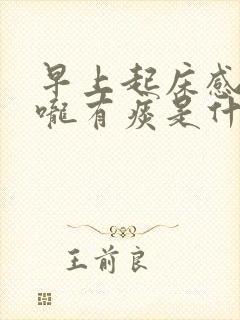 早上起床感
嚨有痰是什
王前良